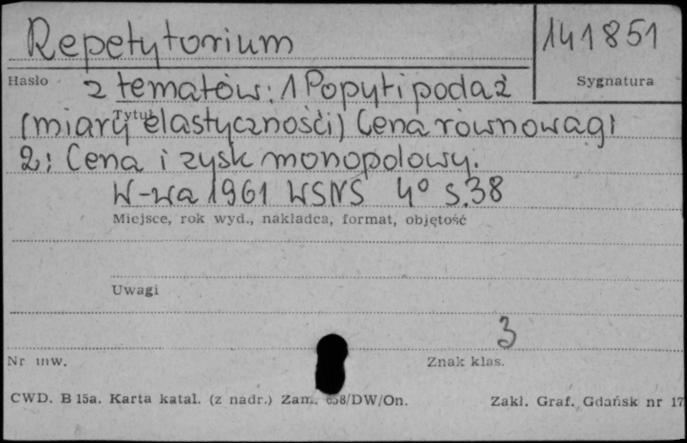 Repetytorium
141851
Hasło
Sygnatura
z tematów: 1 Popyt i podaż
Tytuł
(miary elastyczności) Cena równowagi
2: Cena i zysk monopolowy.
W-wa 1961 WSNS 4° s.38
Miejsce, rok wyd., nakładca, format, objętość
Uwagi
3
Nr inw.
Znak klas.
CWD. B 15a. Karta katal. (z nadr.) Zam. /DW/On.
Zakł. Graf. Gdańsk nr 17